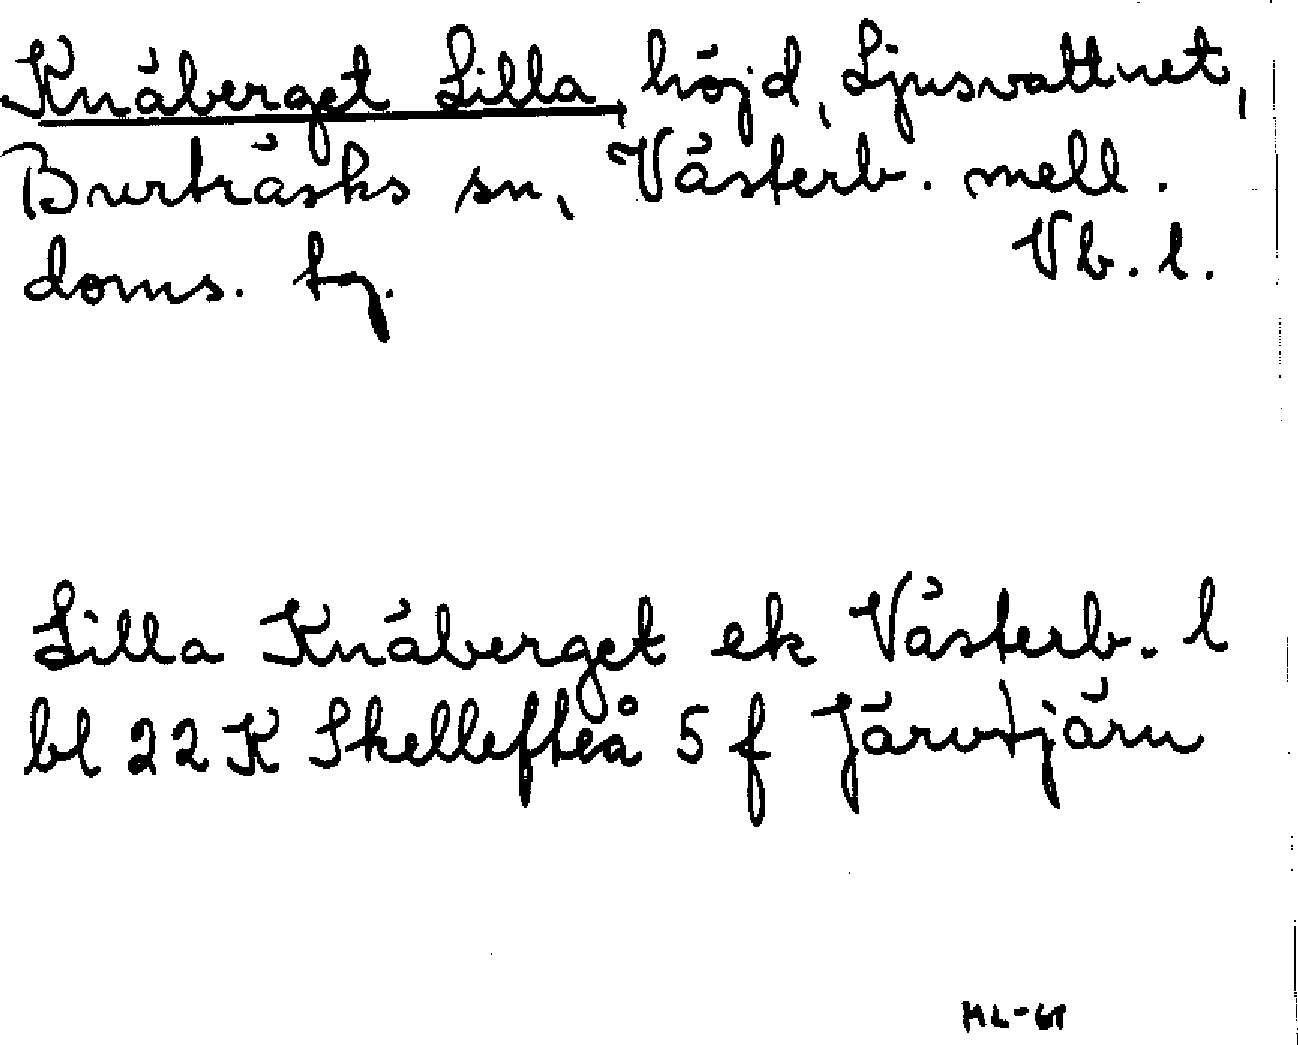 Knäberget Lilla, höjd, Ljusvattnet,
Burträsks sn, Västerb. mell.
doms. tg. Vb. l.
Lilla Knäberget ek Västerb. l
bl 22 K Skellefteå 5 f Järvtjärn